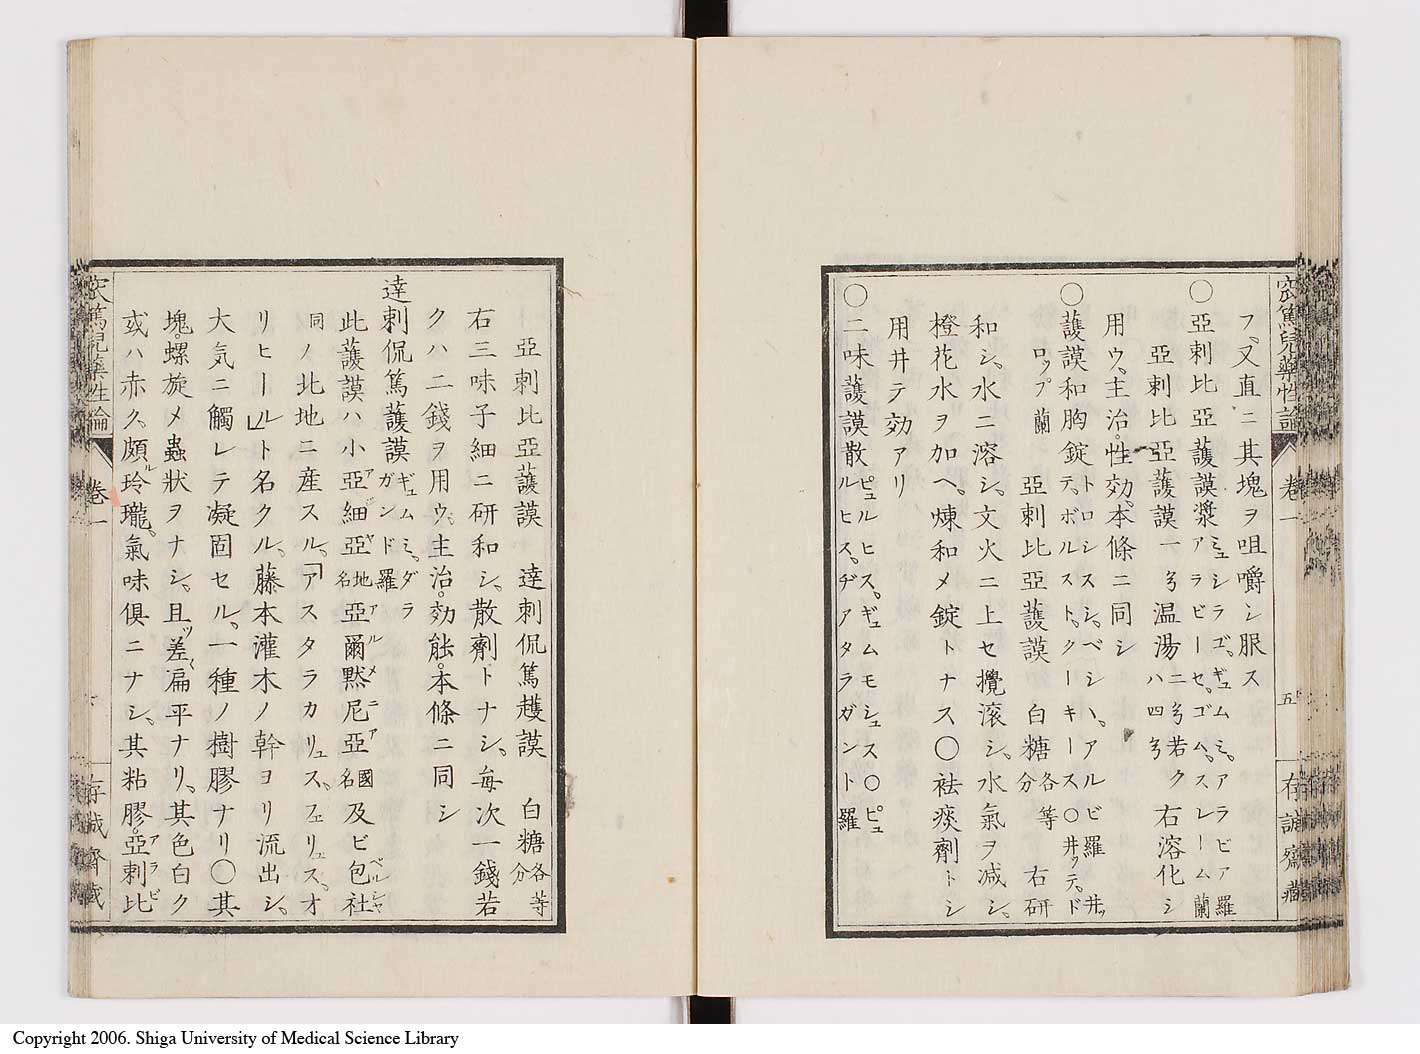 窊篤兒藥性論
卷一
五
存誠齋藏
フ、又直ニ其塊ヲ咀嚼シ服ス
〇亞剌比亞䕶謨漿 ミュシラゴ、ギュムミ、アラビア羅
アラビーセ、ゴム、スレーム蘭
亞剌比亞䕶謨一兮温湯ハ四兮
二兮若ク
右溶化シ
用ウ、主治、性効、本條ニ同シ
〇䕶謨和胸錠 トロシスシ、ベシハ、アルビ羅 井ッ
テ、ボルスト、クーキース〇井ッテ、ド
ロップ蘭
亞剌比亞䕶謨 白糖各等分 右研
和シ、水ニ溶シ、文火ニ上セ攪滚シ、水氣ヲ減シ、
橙花水ヲ加ヘ、煉和メ錠トナス〇袪痰劑トシ
用井テ効アリ
〇二味䕶謨散 ピュルヒス、ギュムモシュス〇ピュ
ルヒス、ヂアタラガント羅
亞剌比亞䕶謨 達剌侃篤䕶謨 白糖各等分
右三味子細ニ研和シ、散劑トナシ、每次一錢若
クハ二錢ヲ用ウ、主治。効能。本條ニ同シ
達剌侃篤䕶謨 ギュムミ、ダラ
ガンド羅
此䕶謨ハ小亞細亞地名亞爾黙尼亞國名及ビ包社
同ノ北地ニ産スル、「アスタラカリュス、フェリュス、オ
リヒール」ト名クル、藤本灌木ノ幹ヨリ流出シ、
大気ニ觸レテ凝固セル、一種ノ樹膠ナリ〇其
塊。螺旋メ蟲状ヲナシ、且ッ差〻扁平ナリ、其色白ク
或ハ赤ク、頗ル玲瓏、氣味俱ニナシ、其粘膠。亞剌比
窊篤兒藥性論
卷一
存誠齋藏